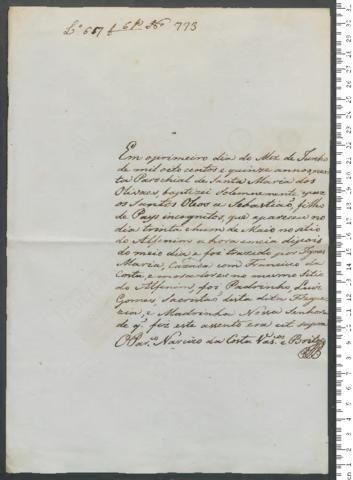 Lº 657 f 6 773
Em oprimeiro dia do Mez de Junho
de mil oito centos e quinze annos, nes
ta Parochial de Santa Maria dos
Olivaes, baptizei Solemnemente, e puz
os Santos Oleos a Sebastiaõ, filho
de Pays incognitos, que apareceu no
dia trinta e hum de Maio no sitio
do Alfenim a hora e meia depois
do meio dia e foi trazido por
Maria, Cazada com Francisco da
Costa, e moradores no mesmo Sitio
do Alfenim, foi Padrinho, Luiz
Gomes, Sacristaõ desta dita Fregue
zia, e Madrinha Nossa Senhora
de q. fez este assento era ut supra
O Par.co Narcizo da Costa Vas.cos e